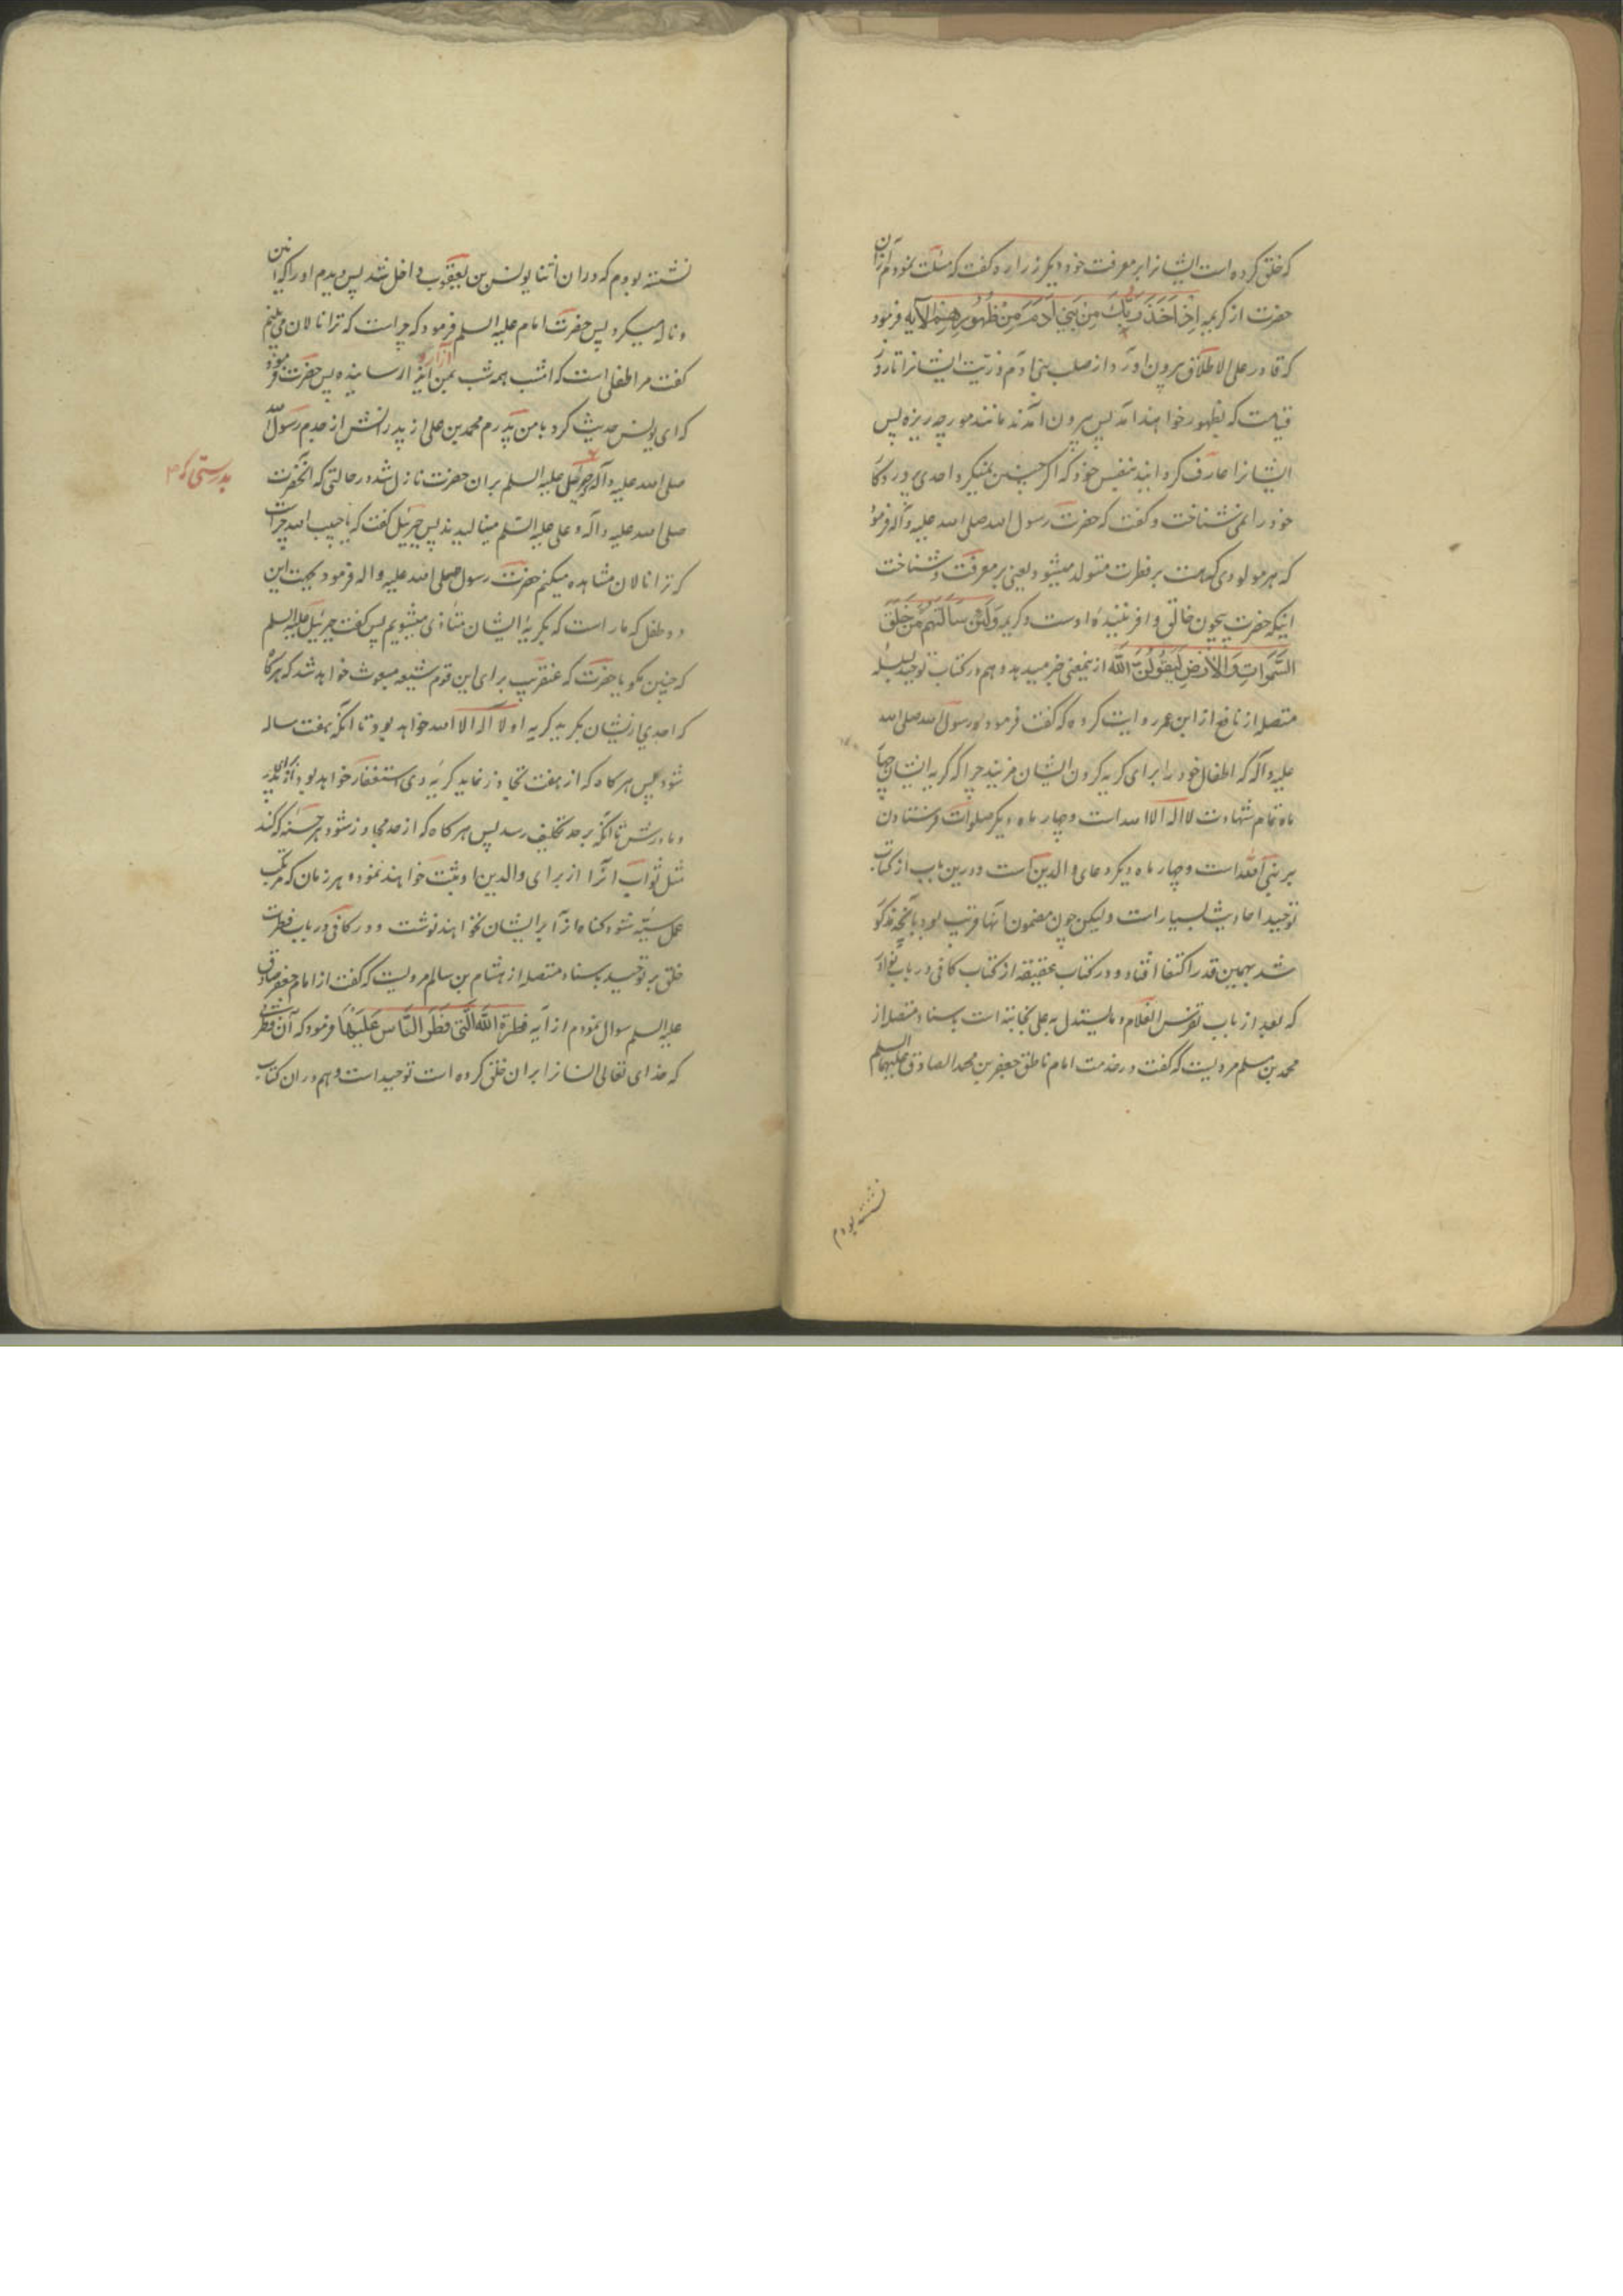 که خلق کرده است ایشانرا بر معرفت خود و دیگر زراره گفت که مسئلت نمودم ازان
حضرت از کریمه اِذْ اَخَذَ رَبُّكَ مِنْ بَنِی آدَمَ مِنْ ظُهُورِهِمْ الآیه فرمود
که قادر علی الاطلاق بیرون آورد از صلب بنی آدم ذریّت ایشانرا تا روز
قیامت که بظهور خواهند آمد پس بیرون آمدند مانند مورچه ریزه پس
ایشانرا عارف کردانید بنفس خود که اگر چنین نمیکرد احدی پروردگار
خود را نمی شناخت و گفت که حضرت رسول الله صلی الله علیه و آله فرمود
که هر مولودی که هست بر فطرت متولد میشود یعنی بر معرفت و شناخت
اینکه حضرت بیچون خالق و افریننیدهٔ اوست و کریمه وَلَئِنْ سَاَلْتَهُمْ مَنْ خَلَقَ
السَّمَوَاتِ وَالْاَرْضِ لَيَقُولُنَّ اللّٰه ازینمعنی خبر میدهد و هم در کتاب توحید بسلسله
متصله از نافع از ابن عمر روایت کرده که گفت فرمود رسول الله صلی الله
علیه و آله که اطفال خود را برای گریه کردن ایشان مزنید چرا که گریه ایشان چهار
ماه تمام شهادت لا اله الا الله است و چهار ماه دیگر صلوات فرستادن
بر نبی الله است و چهار ماه دیگر دعای والدین است و درین باب از کتاب
توحید احادیث بسیار است و لیکن چون مضمون آنها قریب بود بآنچه مذکور
شد بهمین قدر اکتفا افتاد و در کتاب عقیقه از کتاب کافی در باب نوادر
که بعد از باب تفرس الغلام و ما یستدل به علی نجابته است باسناد متصله از
محمد بن مسلم مرویست که گفت در خدمت امام ناطق جعفر بن محمد الصادق علیهما السلم
نشسته بودم
نشسته بودم که دران اثنا یونس بن یعقوب داخل شد پس دیدم او را که انین
و ناله میکرد پس حضرت امام علیه السلم فرمود که چراست که ترا نالان می بینم
گفت مرا طفلی است که امشب همه شب بمن ایذا رسانیده پس حضرت فرمود
آزار
که ای یونس حدیث کرد با من پدرم محمد بن علی از پدرانش از جدم رسول الله
صلی الله علیه و آله که جبرئیل علیه السلم بران حضرت نازل شد در حالتی که آنحضرت
بدرستی که
صلی الله علیه و آله و علی علیه السّلم مینالیدند پس جبرئیل گفت که یا حبیب الله چراست
که ترا نالان مشاهده میکنم حضرت رسول صلی الله علیه و اله فرمود بجهت این
دو طفل که ماراست که بگریهٔ ایشان متأذی میشویم پس گفت جبرئیل علیه السلم
که چنین مگو یا حضرت که عنقریب برای این قوم شیعه مبعوث خواهد شد که هرگاه
که احدی ازیشان بگرید گریه او لا اله الا الله خواهد بود تا آنکه بهفت ساله
شود پس هرگاه که از هفت تجاوز نماید گریهٔ وی استغفار خواهد بود از برای پدر
و مادرش تا آنکه بر حد تکلیف رسد پس هرگاه که از حد تجاوز شود هر حسنه که کند
مثل ثواب آنرا از برای والدین او ثبت خواهند نمود و هر زمان که مرتکب
عمل سیّئه شود گناه انرا بر ایشان نخواهند نوشت و در کافی در باب فطرت
خلق بر توحید باسناد متصله از هشام بن سالم مرویست که گفت از امام جعفر صادق
علیه السلم سوال نمودم از آیه فِطْرَةَ اللّٰهِ الَّتِی فَطَرَ النَّاسَ عَلَيْهَا فرمود که آن فطرتی
که خدای تعالی انسانرا بران خلق کرده است توحید است و هم دران کتاب